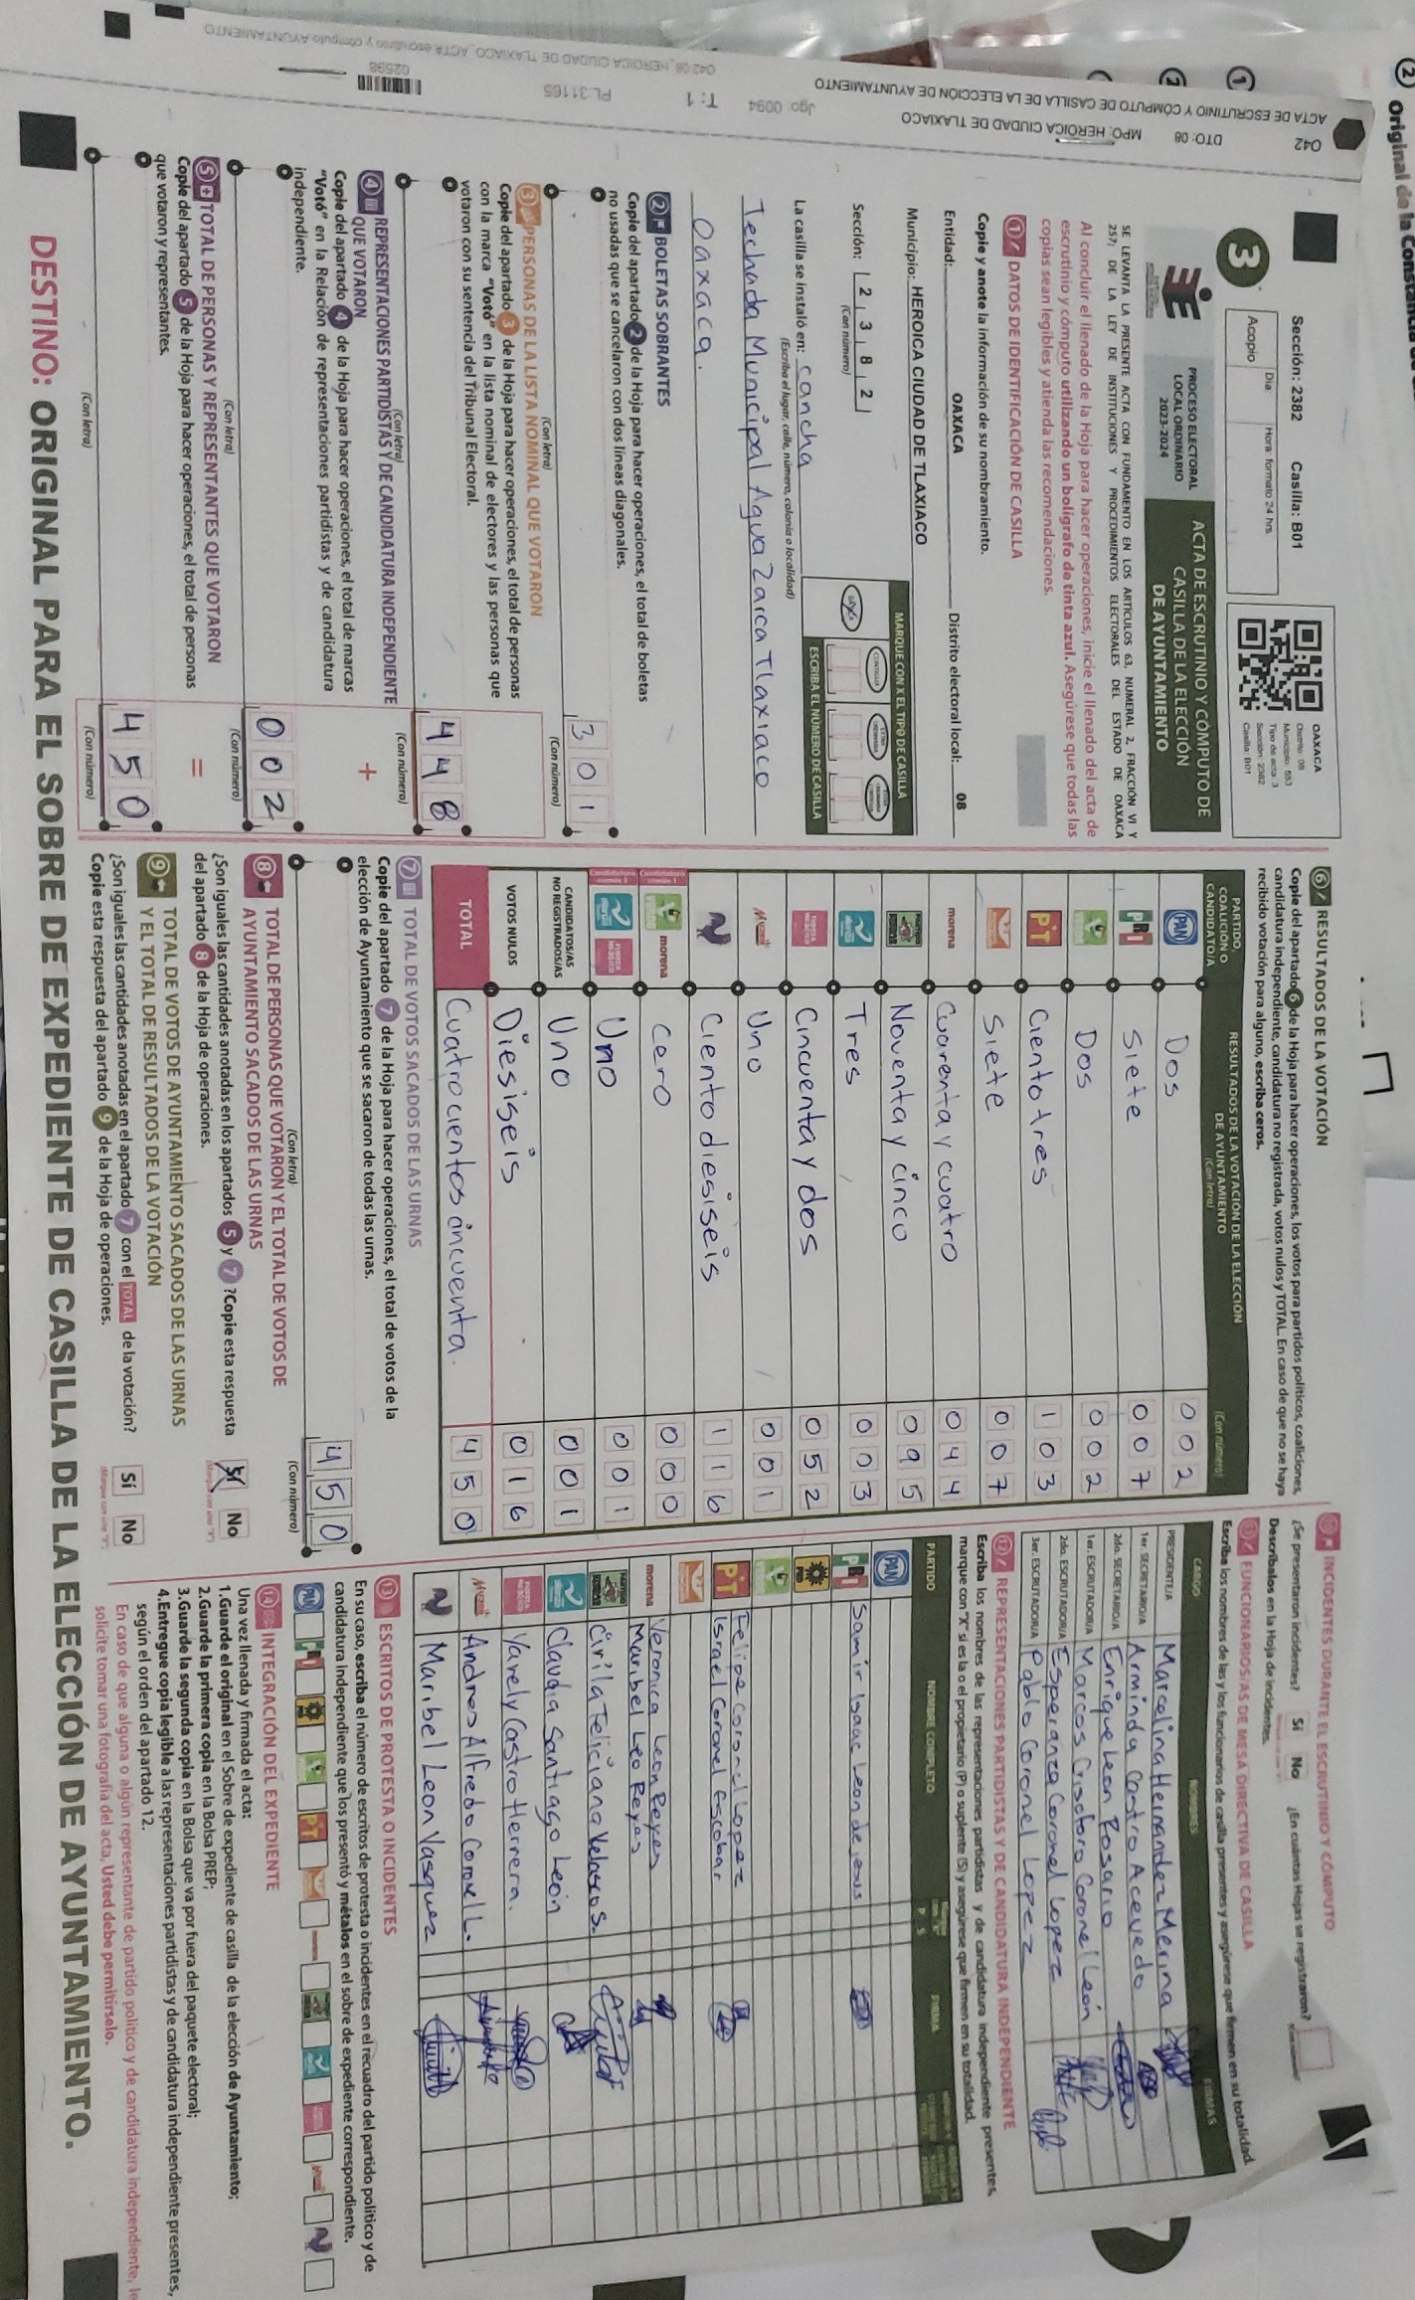 ② Original de la
ACTA DE ESCRUTINIO Y CÓMPUTO DE CASILLA DE LA ELECCIÓN DE AYUNTAMIENTO
042 DTO: 08 MPO: HEROICA CIUDAD DE TLAXIACO Jgo: 0094 T: 1 PL:31165 02598
Sección: 2382 Casilla: B01
3
Acopio
Día: Hora: formato 24 hrs.
OAXACA
Distrito: 08
Tipo de acta: 3
Sección: 2382
Casilla: B01
PROCESO ELECTORAL
LOCAL ORDINARIO
2023-2024
ACTA DE ESCRUTINIO Y CÓMPUTO DE
CASILLA DE LA ELECCIÓN
DE AYUNTAMIENTO
SE LEVANTA LA PRESENTE ACTA CON FUNDAMENTO EN LOS ARTÍCULOS 63, NUMERAL 2, FRACCIÓN VI Y
257; DE LA LEY DE INSTITUCIONES Y PROCEDIMIENTOS ELECTORALES DEL ESTADO DE OAXACA
Al concluir el llenado de la Hoja para hacer operaciones, inicie el llenado del acta de
escrutinio y cómputo utilizando un bolígrafo de tinta azul. Asegúrese que todas las
copias sean legibles y atienda las recomendaciones.
① DATOS DE IDENTIFICACIÓN DE CASILLA
Copie y anote la información de su nombramiento.
Entidad: OAXACA Distrito electoral local: 08
Municipio: HEROICA CIUDAD DE TLAXIACO
Sección: 2 3 8 2
(Con número)
MARQUE CON X EL TIPO DE CASILLA
ESCRIBA EL NÚMERO DE CASILLA
La casilla se instaló en: cancha
(Escriba el lugar, calle, número, colonia o localidad)
Techada Municipal Agua Zarca Tlaxiaco
Oaxaca.
② BOLETAS SOBRANTES
Copie del apartado 2 de la Hoja para hacer operaciones, el total de boletas
no usadas que se cancelaron con dos líneas diagonales.
301
(Con letra) (Con número)
③ PERSONAS DE LA LISTA NOMINAL QUE VOTARON
Copie del apartado 3 de la Hoja para hacer operaciones, el total de personas
con la marca "Votó" en la lista nominal de electores y las personas que
votaron con su sentencia del Tribunal Electoral.
448
(Con letra) (Con número)
④ REPRESENTACIONES PARTIDISTAS Y DE CANDIDATURA INDEPENDIENTE
QUE VOTARON
+
Copie del apartado 4 de la Hoja para hacer operaciones, el total de marcas
"Votó" en la Relación de representaciones partidistas y de candidatura
independiente.
002
(Con letra) (Con número)
⑤ TOTAL DE PERSONAS Y REPRESENTANTES QUE VOTARON
=
Copie del apartado 5 de la Hoja para hacer operaciones, el total de personas
que votaron y representantes.
450
(Con letra) (Con número)
⑥ RESULTADOS DE LA VOTACIÓN
Copie del apartado 6 de la Hoja para hacer operaciones, los votos para partidos políticos, coaliciones,
candidatura independiente, candidatura no registrada, votos nulos y TOTAL. En caso de que no se haya
recibido votación para alguno, escriba ceros.
PARTIDO, COALICIÓN O CANDIDATO/A
RESULTADOS DE LA VOTACIÓN DE LA ELECCIÓN
DE AYUNTAMIENTO
(Con letra) (Con número)
PAN Dos 002
PRI Siete 007
Dos 002
PT Ciento tres 103
Siete 007
morena Cuarenta y cuatro 044
Noventa y cinco 095
Tres 003
Cincuenta y dos 052
Uno 001
Ciento diesiseis 116
morena Cero 000
Uno 001
CANDIDATOS/AS NO REGISTRADOS/AS Uno 001
VOTOS NULOS Diesiseis 016
TOTAL Cuatrocientos cincuenta. 450
⑦ TOTAL DE VOTOS SACADOS DE LAS URNAS
Copie del apartado 7 de la Hoja para hacer operaciones, el total de votos de la
elección de Ayuntamiento que se sacaron de todas las urnas.
450
(Con letra) (Con número)
⑧ TOTAL DE PERSONAS QUE VOTARON Y EL TOTAL DE VOTOS DE
AYUNTAMIENTO SACADOS DE LAS URNAS
¿Son iguales las cantidades anotadas en los apartados 5 y 7? Copie esta respuesta
del apartado 8 de la Hoja de operaciones.
Sí No
⑨ TOTAL DE VOTOS DE AYUNTAMIENTO SACADOS DE LAS URNAS
Y EL TOTAL DE RESULTADOS DE LA VOTACIÓN
¿Son iguales las cantidades anotadas en el apartado 7 con el TOTAL de la votación?
Copie esta respuesta del apartado 9 de la Hoja de operaciones.
Sí No
INCIDENTES DURANTE EL ESCRUTINIO Y CÓMPUTO
¿Se presentaron incidentes? Sí No ¿En cuántas Hojas se registraron?
Descríbalos en la Hoja de incidentes.
FUNCIONARIOS/AS DE MESA DIRECTIVA DE CASILLA
Escriba los nombres de las y los funcionarios de casilla presentes y asegúrese que firmen en su totalidad.
CARGO NOMBRES FIRMAS
PRESIDENTE/A Marcelina Hernandez Merina
1er. SECRETARIO/A Arminda Castro Acevedo
2do. SECRETARIO/A Enrique Leon Rosario
1er. ESCRUTADOR/A Marcos Crisoforo Coronel León
2do. ESCRUTADOR/A Esperanza Coronel Lopez
3er. ESCRUTADOR/A Pablo Coronel Lopez
⑫ REPRESENTACIONES PARTIDISTAS Y DE CANDIDATURA INDEPENDIENTE
Escriba los nombres de las representaciones partidistas y de candidatura independiente presentes,
marque con "X" si es la o el propietario (P) o suplente (S) y asegúrese que firmen en su totalidad.
PARTIDO NOMBRE COMPLETO P S FIRMA
PAN
PRI Samir Isaac Leon de jesus
PRD
PT Felipe Coronel Lopez
Israel Coronel Escobar
morena Veronica Leon Reyes
Maribel Leo Reyes
Cirila Feliciano Velascos.
Claudia Santiago Leon
Yarely Castro Herrera.
Andres Alfredo Coronel L.
Maribel Leon Vasquez
⑬ ESCRITOS DE PROTESTA O INCIDENTES
En su caso, escriba el número de escritos de protesta o incidentes en el recuadro del partido político y de
candidatura independiente que los presentó y métalos en el sobre de expediente correspondiente.
PAN PRI PT
⑭ INTEGRACIÓN DEL EXPEDIENTE
Una vez llenada y firmada el acta:
1.Guarde el original en el Sobre de expediente de casilla de la elección de Ayuntamiento;
2.Guarde la primera copia en la Bolsa PREP;
3.Guarde la segunda copia en la Bolsa que va por fuera del paquete electoral;
4.Entregue copia legible a las representaciones partidistas y de candidatura independiente presentes,
según el orden del apartado 12.
En caso de que alguna o algún representante de partido político y de candidatura independiente, le
solicite tomar una fotografía del acta, Usted debe permitírselo.
DESTINO: ORIGINAL PARA EL SOBRE DE EXPEDIENTE DE CASILLA DE LA ELECCIÓN DE AYUNTAMIENTO.
042 08_HEROICA CIUDAD DE TLAXIACO_ACTA escrutinio y computo AYUNTAMIENTO